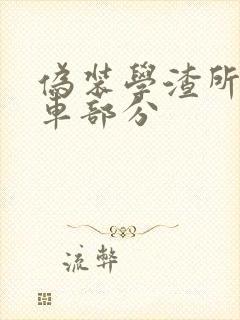 偽裝學渣所
車部分
流弊